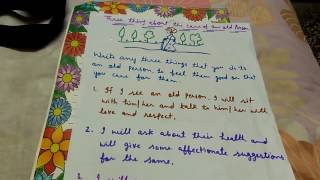 Three thing about the care of an old Person
Write any three things that you do to
an old person to feel them good or that
you care for them.
1. If I see an old person. I will sit
with him/her and talk to him/her with
love and respect.
2. I will ask about their health and
will give some affectionate suggestions
for the same.
3. I will